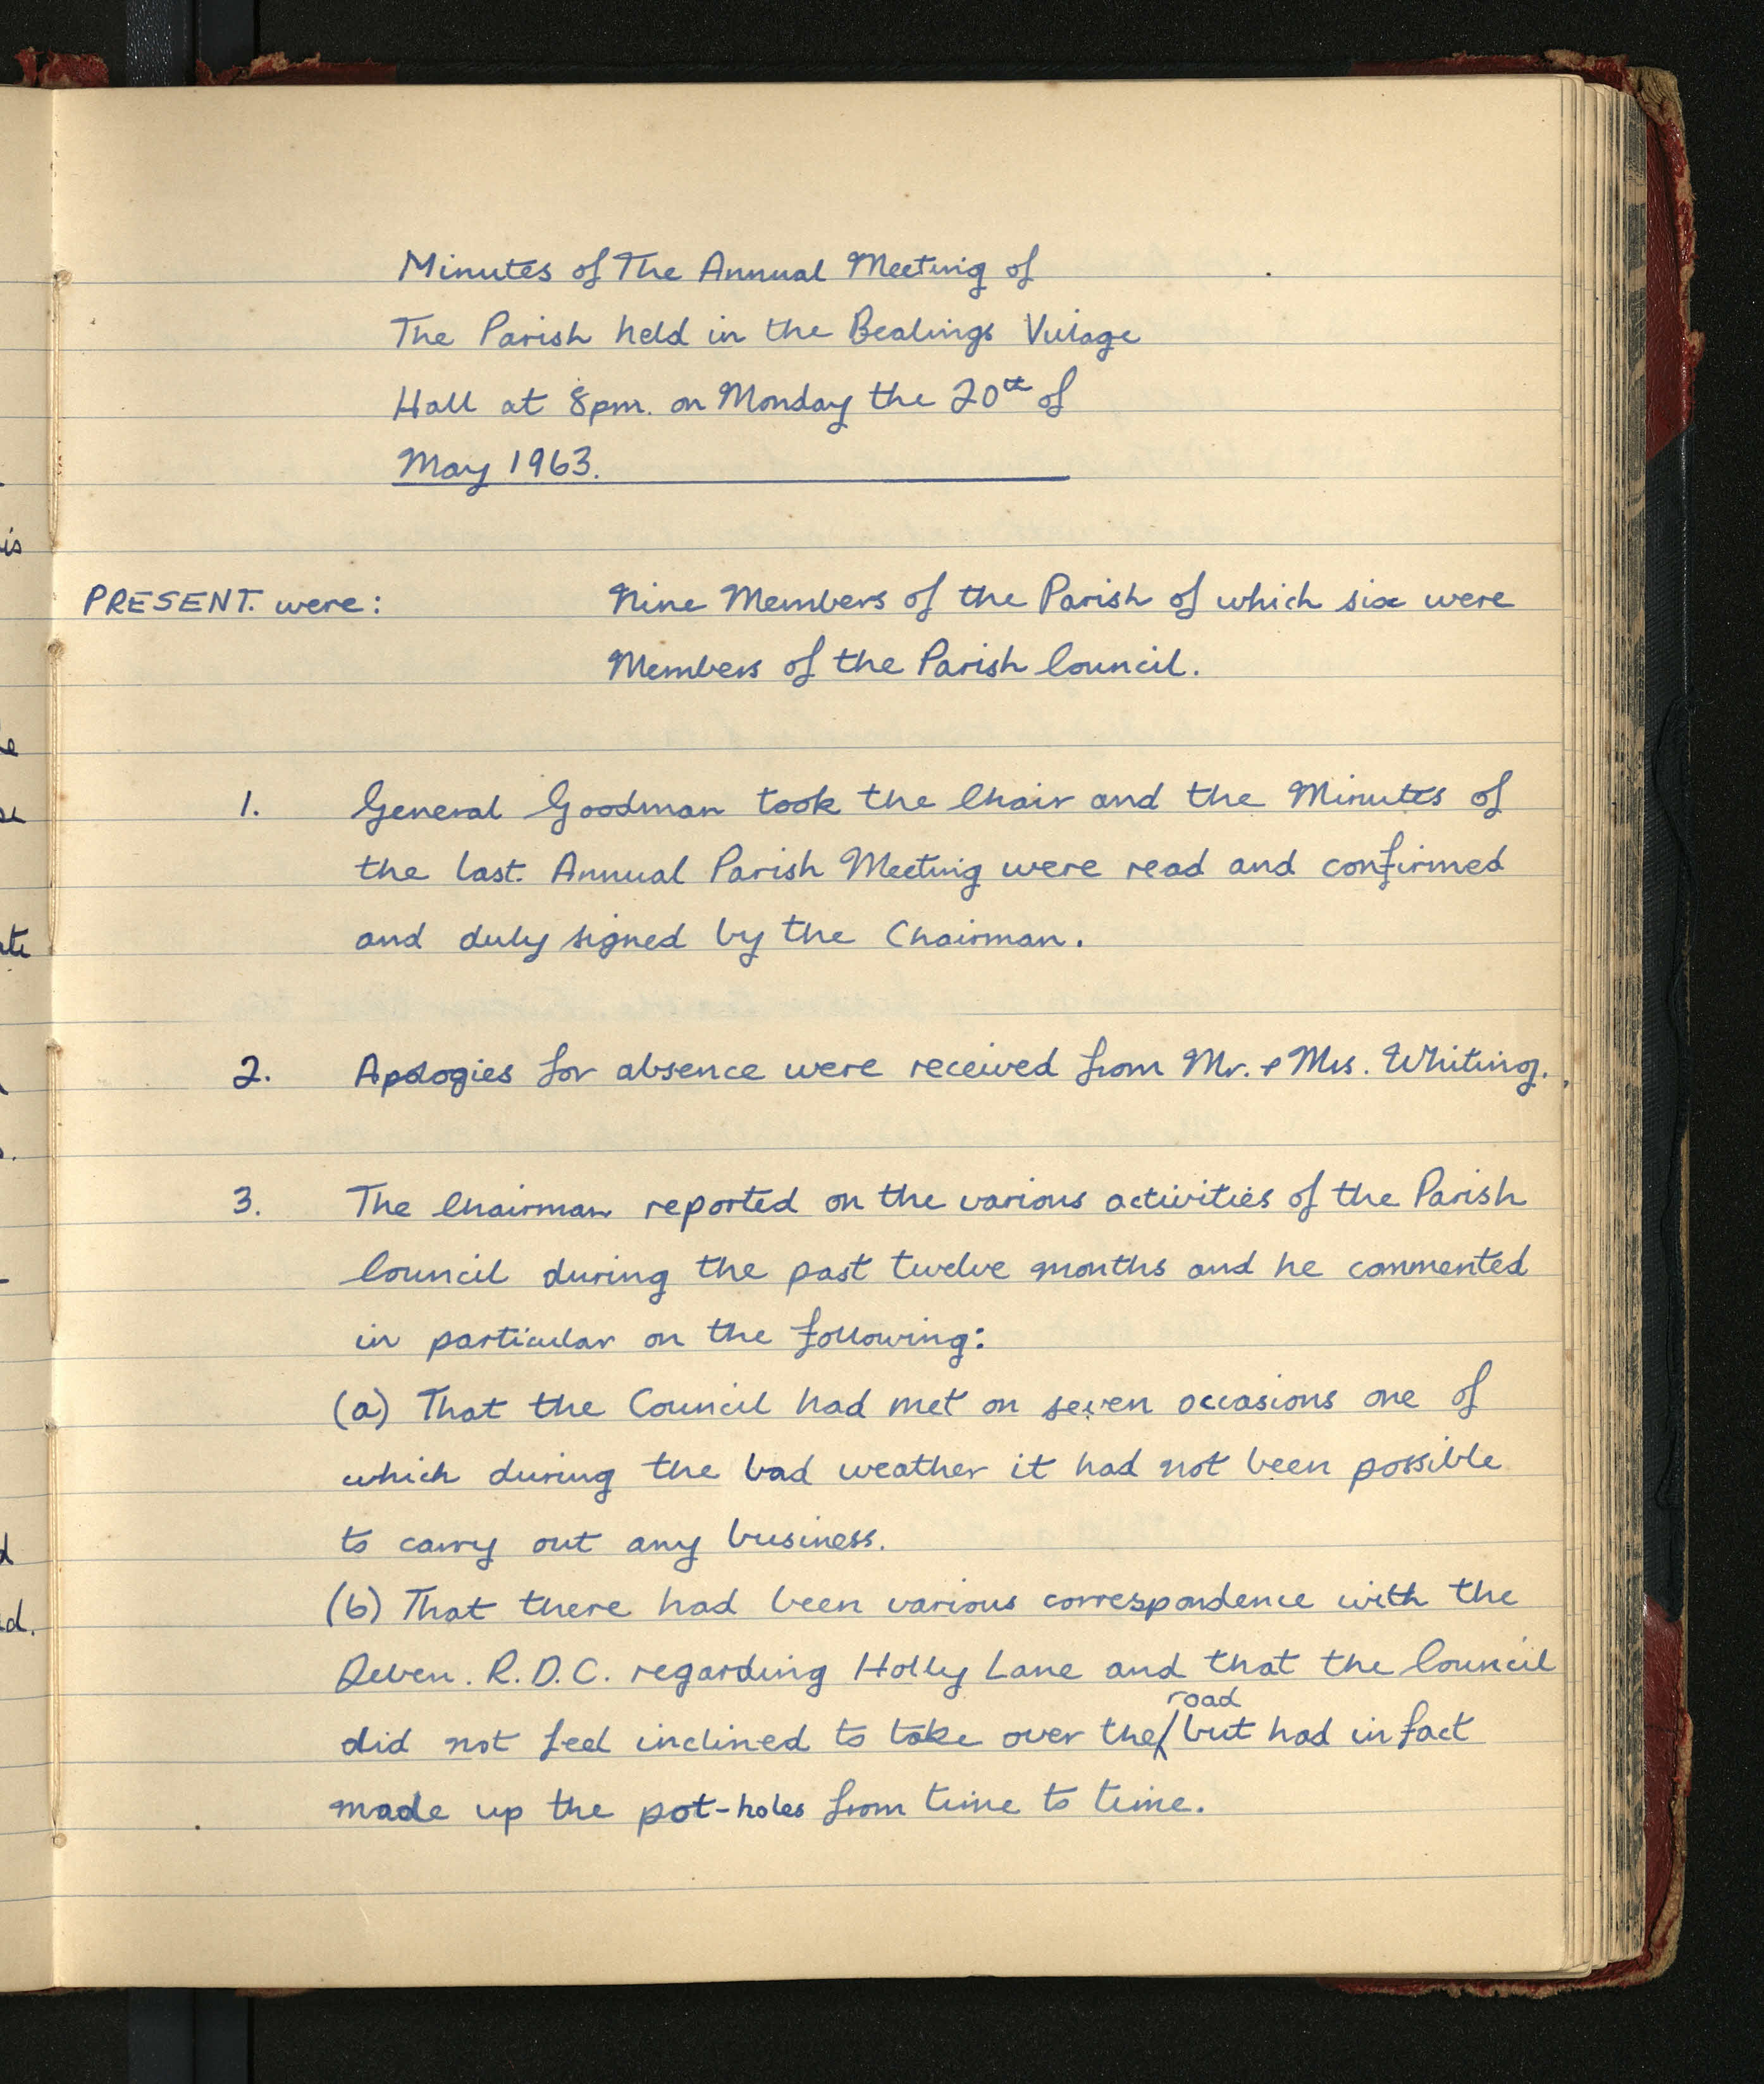 Minutes of The Annual Meeting of
The Parish held in the Bealings Village
Hall at 8pm. on Monday the 20th of
May 1963.
PRESENT. were: Nine Members of the Parish of which six were
Members of the Parish Council.
1. General Goodman took the Chair and the Minutes of
the last. Annual Parish Meeting were read and confirmed
and duly signed by the Chairman.
2. Apologies for absence were received from Mr. & Mrs. Whiting.
3. The Chairman reported on the various activities of the Parish
Council during the past twelve months and he commented
in particular on the following:
(a) That the Council had met on seven occasions one of
which during the bad weather it had not been possible
to carry out any business.
(b) That there had been various correspondence with the
Deben. R.D.C. regarding Holly Lane and that the Council
road
did not feel inclined to take over the/ but had in fact
made up the pot-holes from time to time.
is
e
te
d
d.